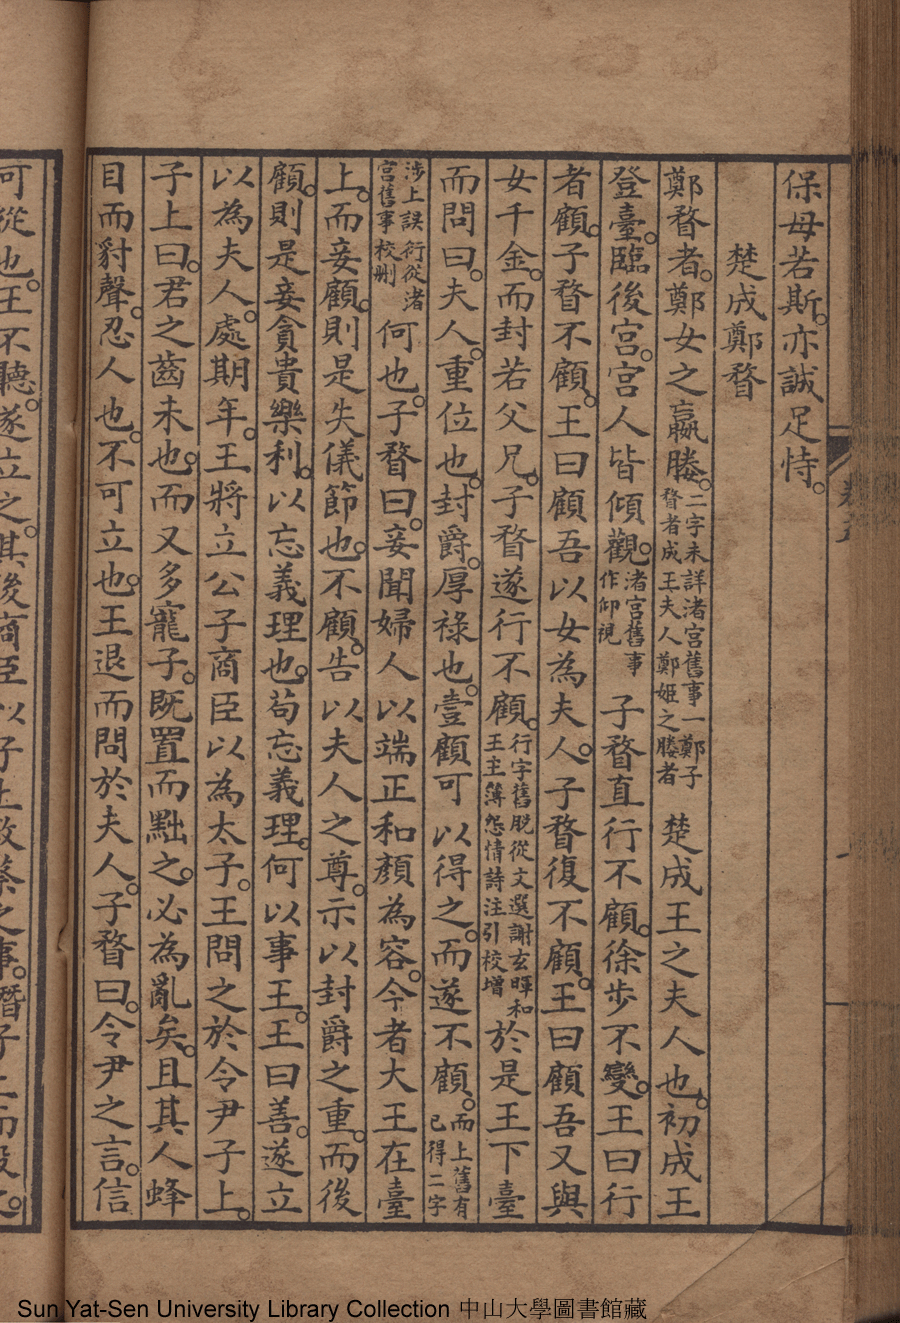 保母若斯。亦誠足恃。
楚成鄭瞀
鄭瞀者。鄭女之嬴媵。二字未詳渚宮舊事一鄭子瞀者成王夫人鄭姬之媵者楚成王之夫人也。初成王
登臺。臨後宮。宮人皆傾觀。渚宮舊事作仰視子瞀直行不顧。徐步不變。王曰行
者顧。子瞀不顧。王曰顧吾以女為夫人。子瞀復不顧。王曰顧吾又與
女千金。而封若父兄。子瞀遂行不顧。行字舊脫從文選謝玄暉和王主簿怨情詩注引校增於是王下臺
而問曰。夫人。重位也。封爵。厚祿也。壹顧可以得之。而遂不顧。而上舊有已得二字
涉上誤衍從渚宮舊事校刪何也。子瞀曰。妾聞婦人以端正和顏為容。今者大王在臺
上。而妾顧。則是失儀節也。不顧。告以夫人之尊。示以封爵之重。而後
顧。則是妾貪貴樂利。以忘義理也。苟忘義理。何以事王。王曰善。遂立
以為夫人。處期年。王將立公子商臣以為太子。王問之於令尹子上。
子上曰。君之齒未也。而又多寵子。既置而黜之。必為亂矣。且其人蜂
目而豺聲。忍人也。不可立也。王退而問於夫人。子瞀曰。令尹之言。信
可從也。王不聽。遂立之。其後商臣以子上救蔡之事。譖子上而殺之。
Sun Yat-Sen University Library Collection 中山大學圖書館藏